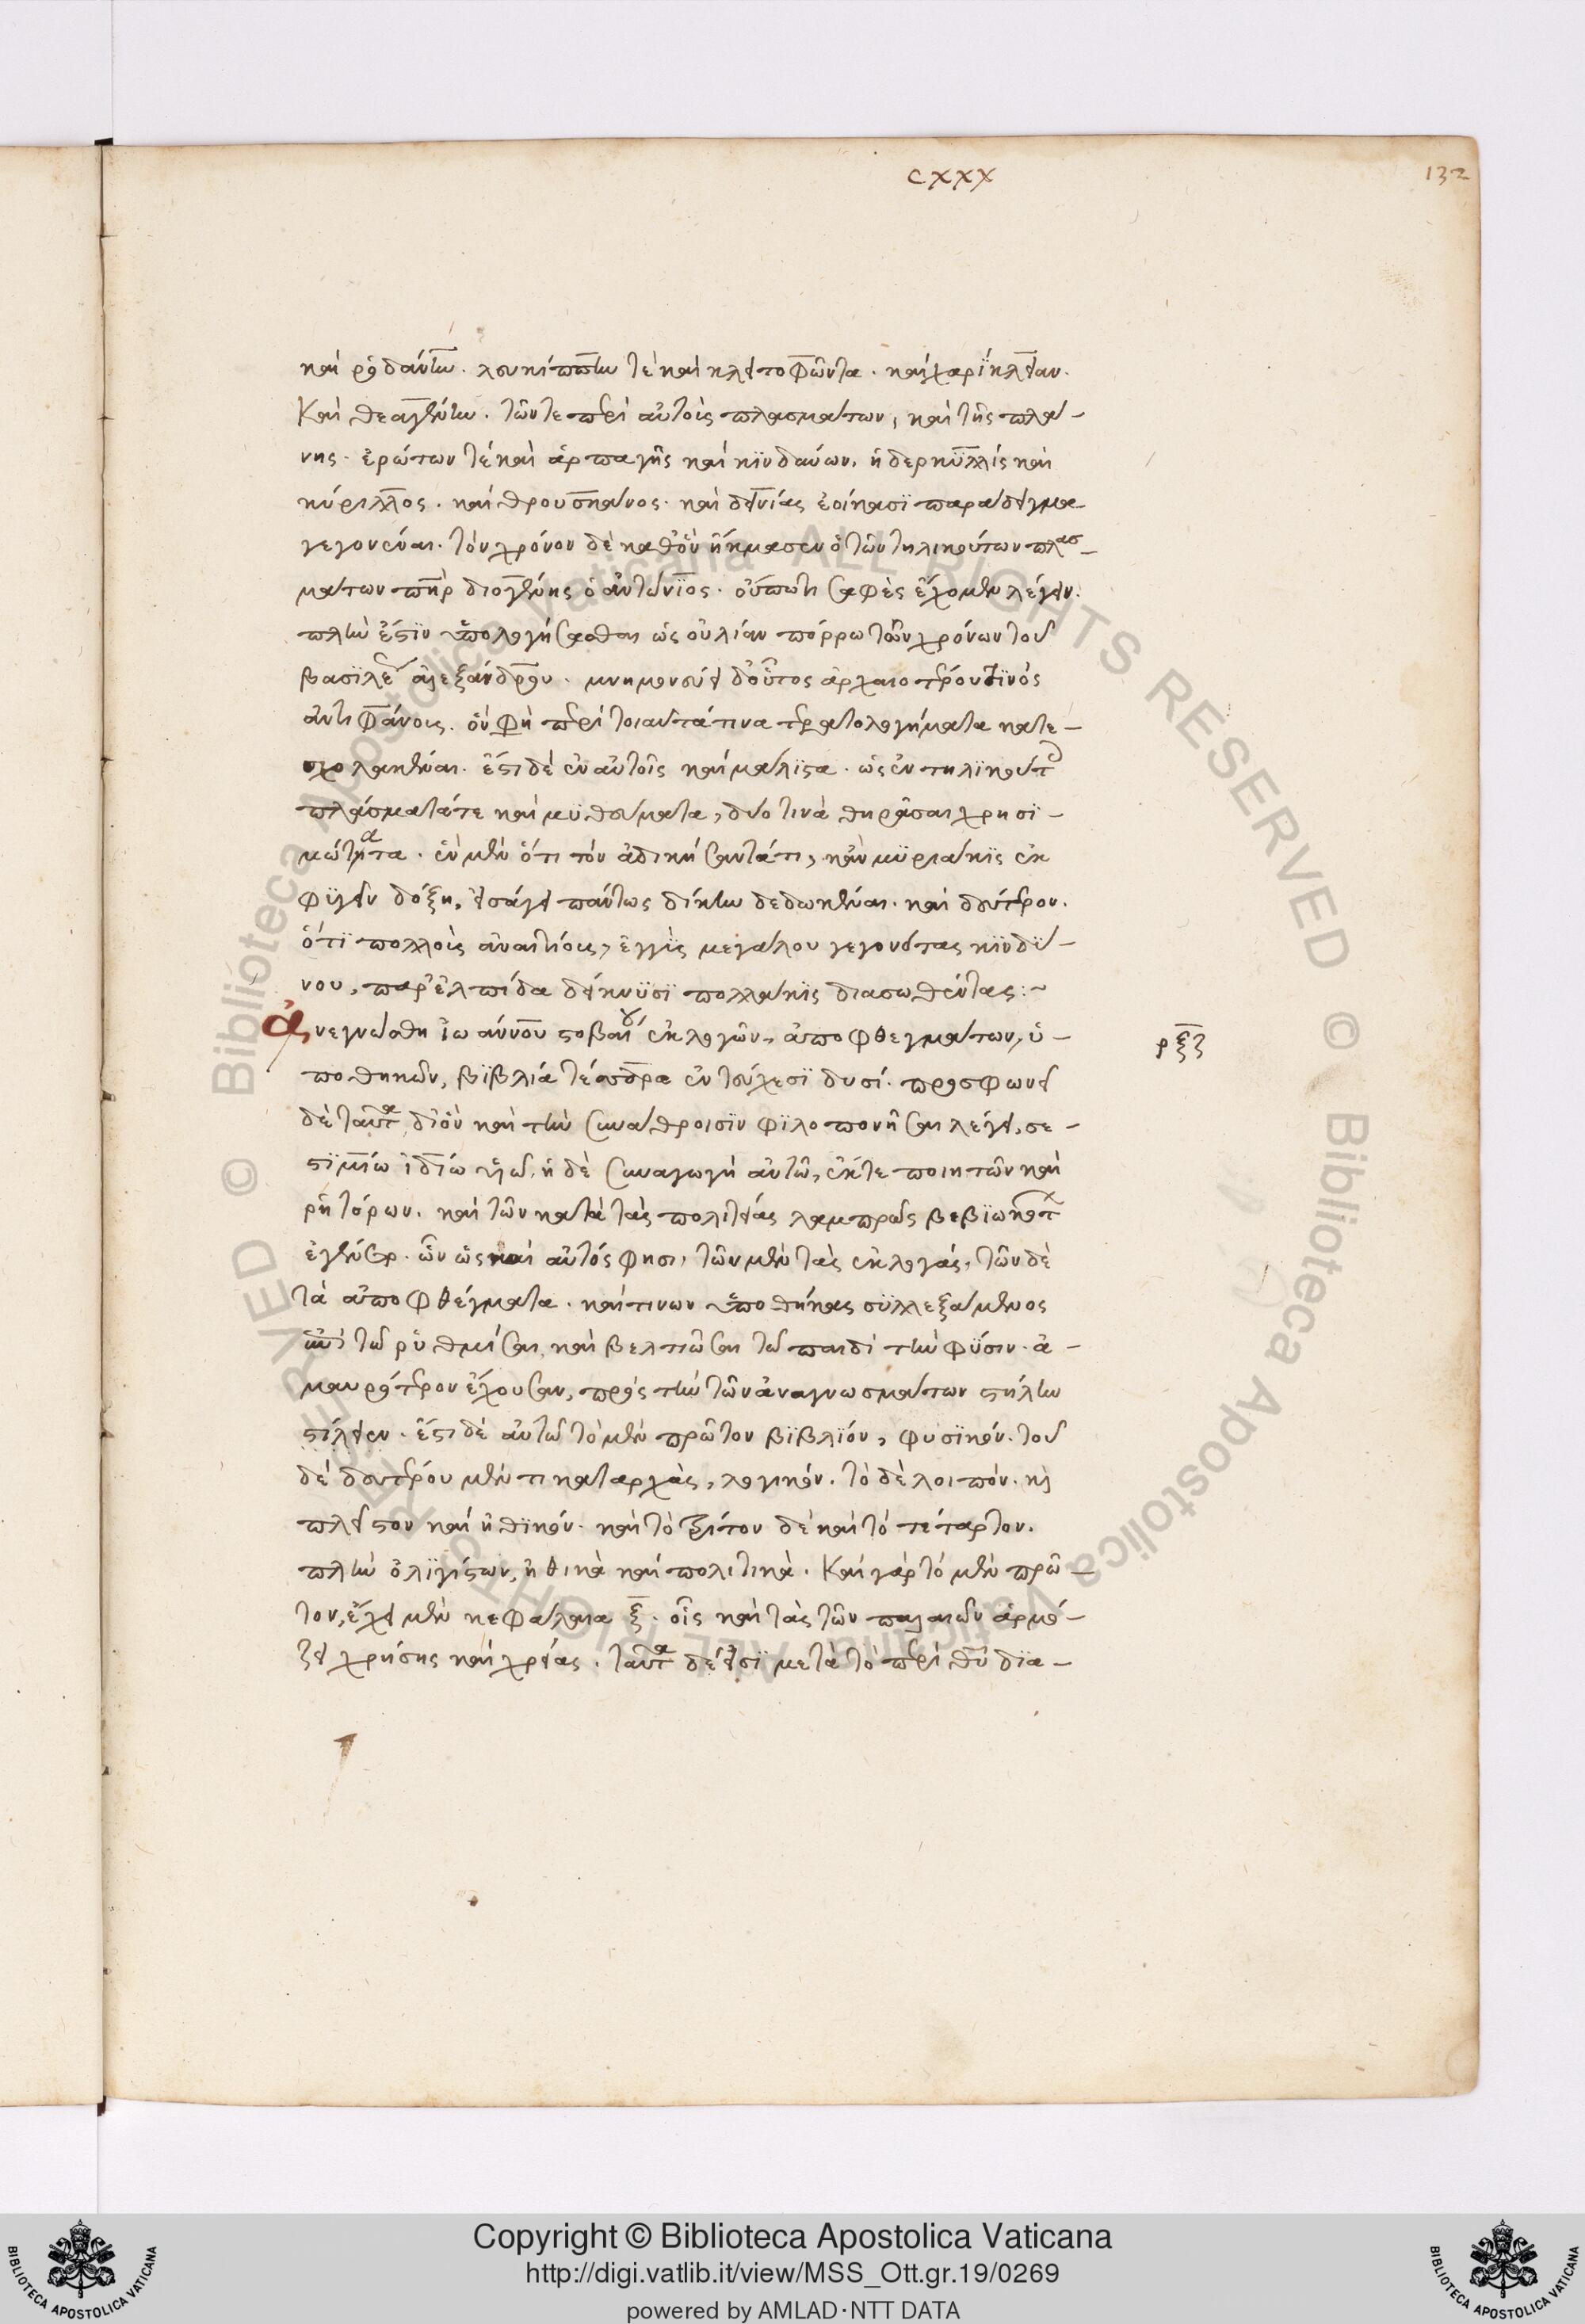 CXXX
132
καὶ ῥοδάνην. λευκίππην τὲ καὶ κλειτοφῶντα. καὶ χαρίκλειαν.
καὶ θεαγένην. τῶν τε περὶ αὐτοὺς πλασμάτων, καὶ τῆς πλά-
νης. ἐρώτων τὲ καὶ ἁρπαγῆς καὶ κϊνδύνων. ἡ δερκϋλλὶς καὶ
κήρυλλος. καὶ θρουσκανὸς. καὶ δεινίας ἐοίκασϊ παράδειγμα
γεγονέναι. τὸν χρόνον δὲ καθ' ὃν ἤκμασεν ὁ τῶν τηλικούτων πλασ-
μάτων πατὴρ διογένης ὁ ἀντώνϊος. οὔπω τι σαφὲς ἔχομεν λέγειν.
πλὴν ἔστϊν ὑπολογήσασθαι ὡς οὐ λίαν πόρρω τῶν χρόνων τοῦ
βασϊλέως ἀλεξάνδρου. μνημονεύει δ' οὗτος ἀρχαιοτέρου τϊνὸς
ἀντιφάνους. ὅν φησὶ περὶ τοιαῦτά τινα τερατολογήματα κατε-
σχολακέναι. ἔστι δὲ ἐν αὐτοῖς καὶ μάλϊστα. ὡς ἐν τηλϊκούτοις
πλάσμασί τε καὶ μϋθεύμασι, δύο τινὰ θηρᾶσαι χρησϊ-
μώτατα. ἓν μὲν ὅτι τὸν ἀδικήσαντά τι, κἂν μϋριάκϊς ἐκ
φϋγεῖν δόξῃ, εἰσάγει πάντως δίκην δεδωκέναι. καὶ δεύτερον.
ὅτϊ πολλοὺς ἀναιτίους, ἐγγὺς μεγάλου γεγονότας κϊνδϋ-
νου, παρ' ἐλπίδα δείκνϋσϊ πολλάκϊς διασωθέντας:~
Ἀνεγνώσθη ἰωάννου στοβαίου ἐκλογῶν, ἀποφθεγμάτων, ὑ-
ρξζ
ποθηκῶν, βϊβλία τέσσαρα ἐν τεύχεσϊ δυσί. προσφωνεῖ
δὲ ταῦτα, δι' ὃν καὶ τὴν συνάθροισϊν φϊλοπονῆσαι λέγει, σε-
πτϊμίω ἰδίω υἱῷ. ἡ δὲ συναγωγὴ αὐτῶ, ἔκ τε ποιητῶν καὶ
ῥητόρων. καὶ τῶν κατὰ τὰς πολιτείας λαμπρῶς βεβϊωκότων
ἐγένετο. ὧν ὡς καὶ αὐτός φησι, τῶν μὲν τὰς ἐκλογάς, τῶν δὲ
τὰ ἀποφθέγματα. καί τινων ὑποθήκας σϋλλεξάμενος
ἐπὶ τῶ ῥυθμίσαι, καὶ βελτιῶσαι τῶ παιδὶ τὴν φϋσιν. ἀ-
μαυρότερον ἔχουσαν, πρὸς τὴν τῶν ἀναγνωσμάτων στήλην
στίλειεν. ἔστι δὲ αὐτῶ τὸ μὲν πρῶτον βϊβλϊόν, φυσϊκόν. τοῦ
δὲ δευτέρου μέν τι καταρχὰς, λογικόν. τὸ δὲ λοιπόν. καὶ
πλεῖστον καὶ ἠθϊκόν. καὶ τὸ τρίτον δὲ καὶ τὸ τέταρτον.
πλὴν ὀλϊγίστων, ἠθικὰ καὶ πολιτικὰ. καὶ γὰρ τὸ μὲν πρῶ-
τον, ἔχει μὲν κεφάλαια ξ. οἷς καὶ τὰς τῶν παλαιῶν ἁρμό-
ζει χρήσεις καὶ χρείας. ταῦτα δέ εἰσϊ μετὰ τὸ περὶ θεοῦ δϊα-
Copyright © Biblioteca Apostolica Vaticana
http://digi.vatlib.it/view/MSS_Ott.gr.19/0269
powered by AMLAD·NTT DATA